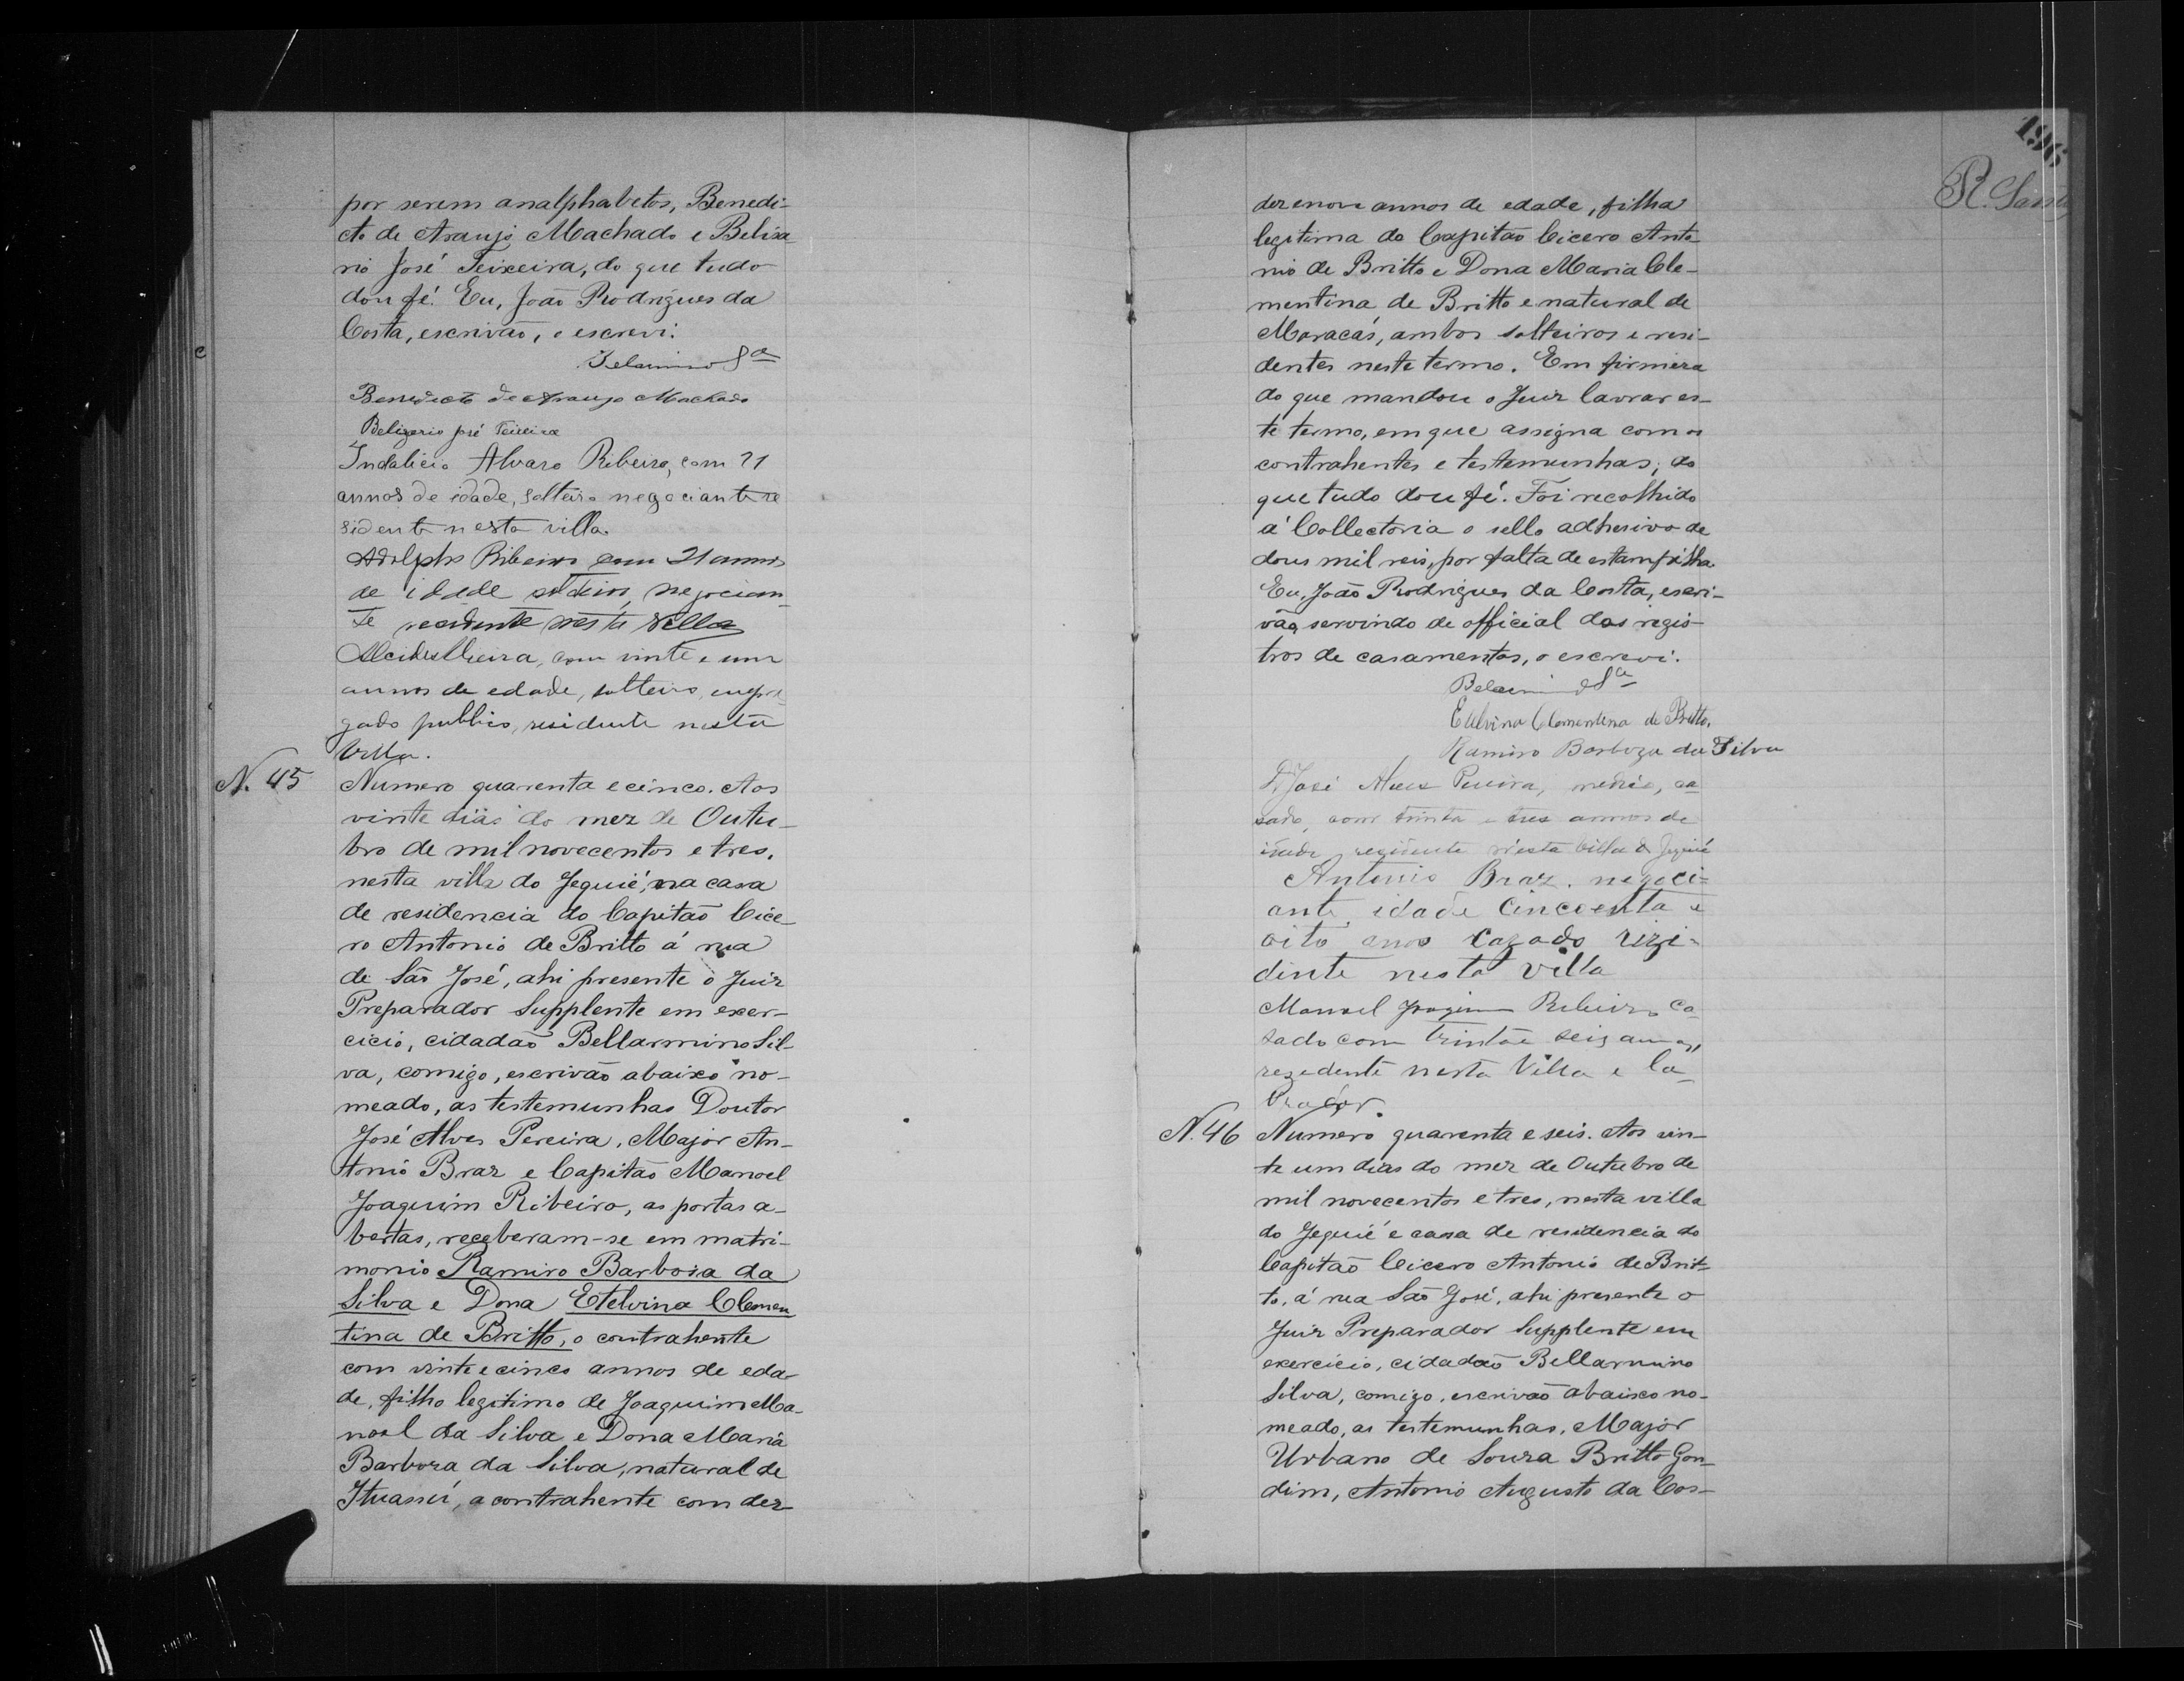 por serem analphabetos, Benedi-
cto de Araujo Machado e Belisa-
rio José Teixeira, do que tudo
dou fé. Eu, João Rodrigues da
Costa, escrivão, o escrevi.
Benedicto de Araujo Machado
Belizerio José Teixeira
Indalicio Alvaro Ribeiro, com 21
annos de idade, solteiro negociante re
sidente nesta villa.
Adolpho Ribeiro com 21 annos
de idade solteiro, negocian-
te residente nesta villa
Alcides Meira, com vinte e um
annos de edade, solteiro, empre
gado publico, residente nesta
Villa.
N. 45
Numero quarenta e cinco. Aos
vinte dias do mez de Outu-
bro de mil novecentos e tres,
nesta villa do Jequié, na casa
de residencia do Capitão Cice-
ro Antonio de Britto á rua
de São José, ahi presente o Juiz
Preparador Supplente em exer-
cicio, cidadão Bellarmino Sil-
va, comigo, escrivão abaixo no-
meado, as testemunhas Doutor
José Alves Pereira, Major An-
tonio Braz e Capitão Manoel
Joaquim Ribeiro, as portas a-
bertas, receberam-se em matri-
monio Ramiro Barboza da
Silva e Dona Etelvina Clemen
tina de Britto, o contrahente
com vinte e cinco annos de eda-
de, filho legitimo de Joaquim Ma-
noel da Silva e Dona Maria
Barboza da Silva, natural de
Ituassú, a contrahente com dez
196
R. Santos
dezenove annos de edade, filha
legitima do Capitão Cicero Anto-
nio de Britto e Dona Maria Cle-
mentina de Britto e natural de
Maracás, ambos solteiros e resi-
dentes neste termo. Em firmeza
do que mandou o Juiz lavrar es-
te termo, em que assigna com os
contrahentes e testemunhas; do
que tudo dou fé. Foi recolhido
á Collectoria o sello adhesivo de
dous mil reis, por falta de estampilha.
Eu, João Rodrigues da Costa, escri-
vão, servindo de official dos regis-
tros de casamentos, o escrevi.
Etelvina Clementina de Britto.
Ramiro Barboza da Silva
Dr José Alves Pereira, medico, ca
sado, com trinta e tres annos de
idade, rezidente n'esta Villa de Jequié
Antonio Braz. negoci=
ante, idade Cincoenta e
oito anos cazado rizi-
dinte nesta villa
Manoel Joaquim Ribeiro Ca
sado com trinta e seis annos,
rezedente nesta Villa e la-
vrador.
N. 46
Numero quarenta e seis. Aos vin-
te um dias do mez de Outubro de
mil novecentos e tres, nesta villa
do Jequié e casa de residencia do
Capitão Cicero Antonio de Brit-
to, á rua São José, ahi presente o
Juiz Preparador Supplente em
exercicio, cidadão Bellarmino
Silva, comigo, escrivão abaixo no-
meado, as testemunhas, Major
Urbano de Souza Britto Gon-
dim, Antonio Augusto da Cos-